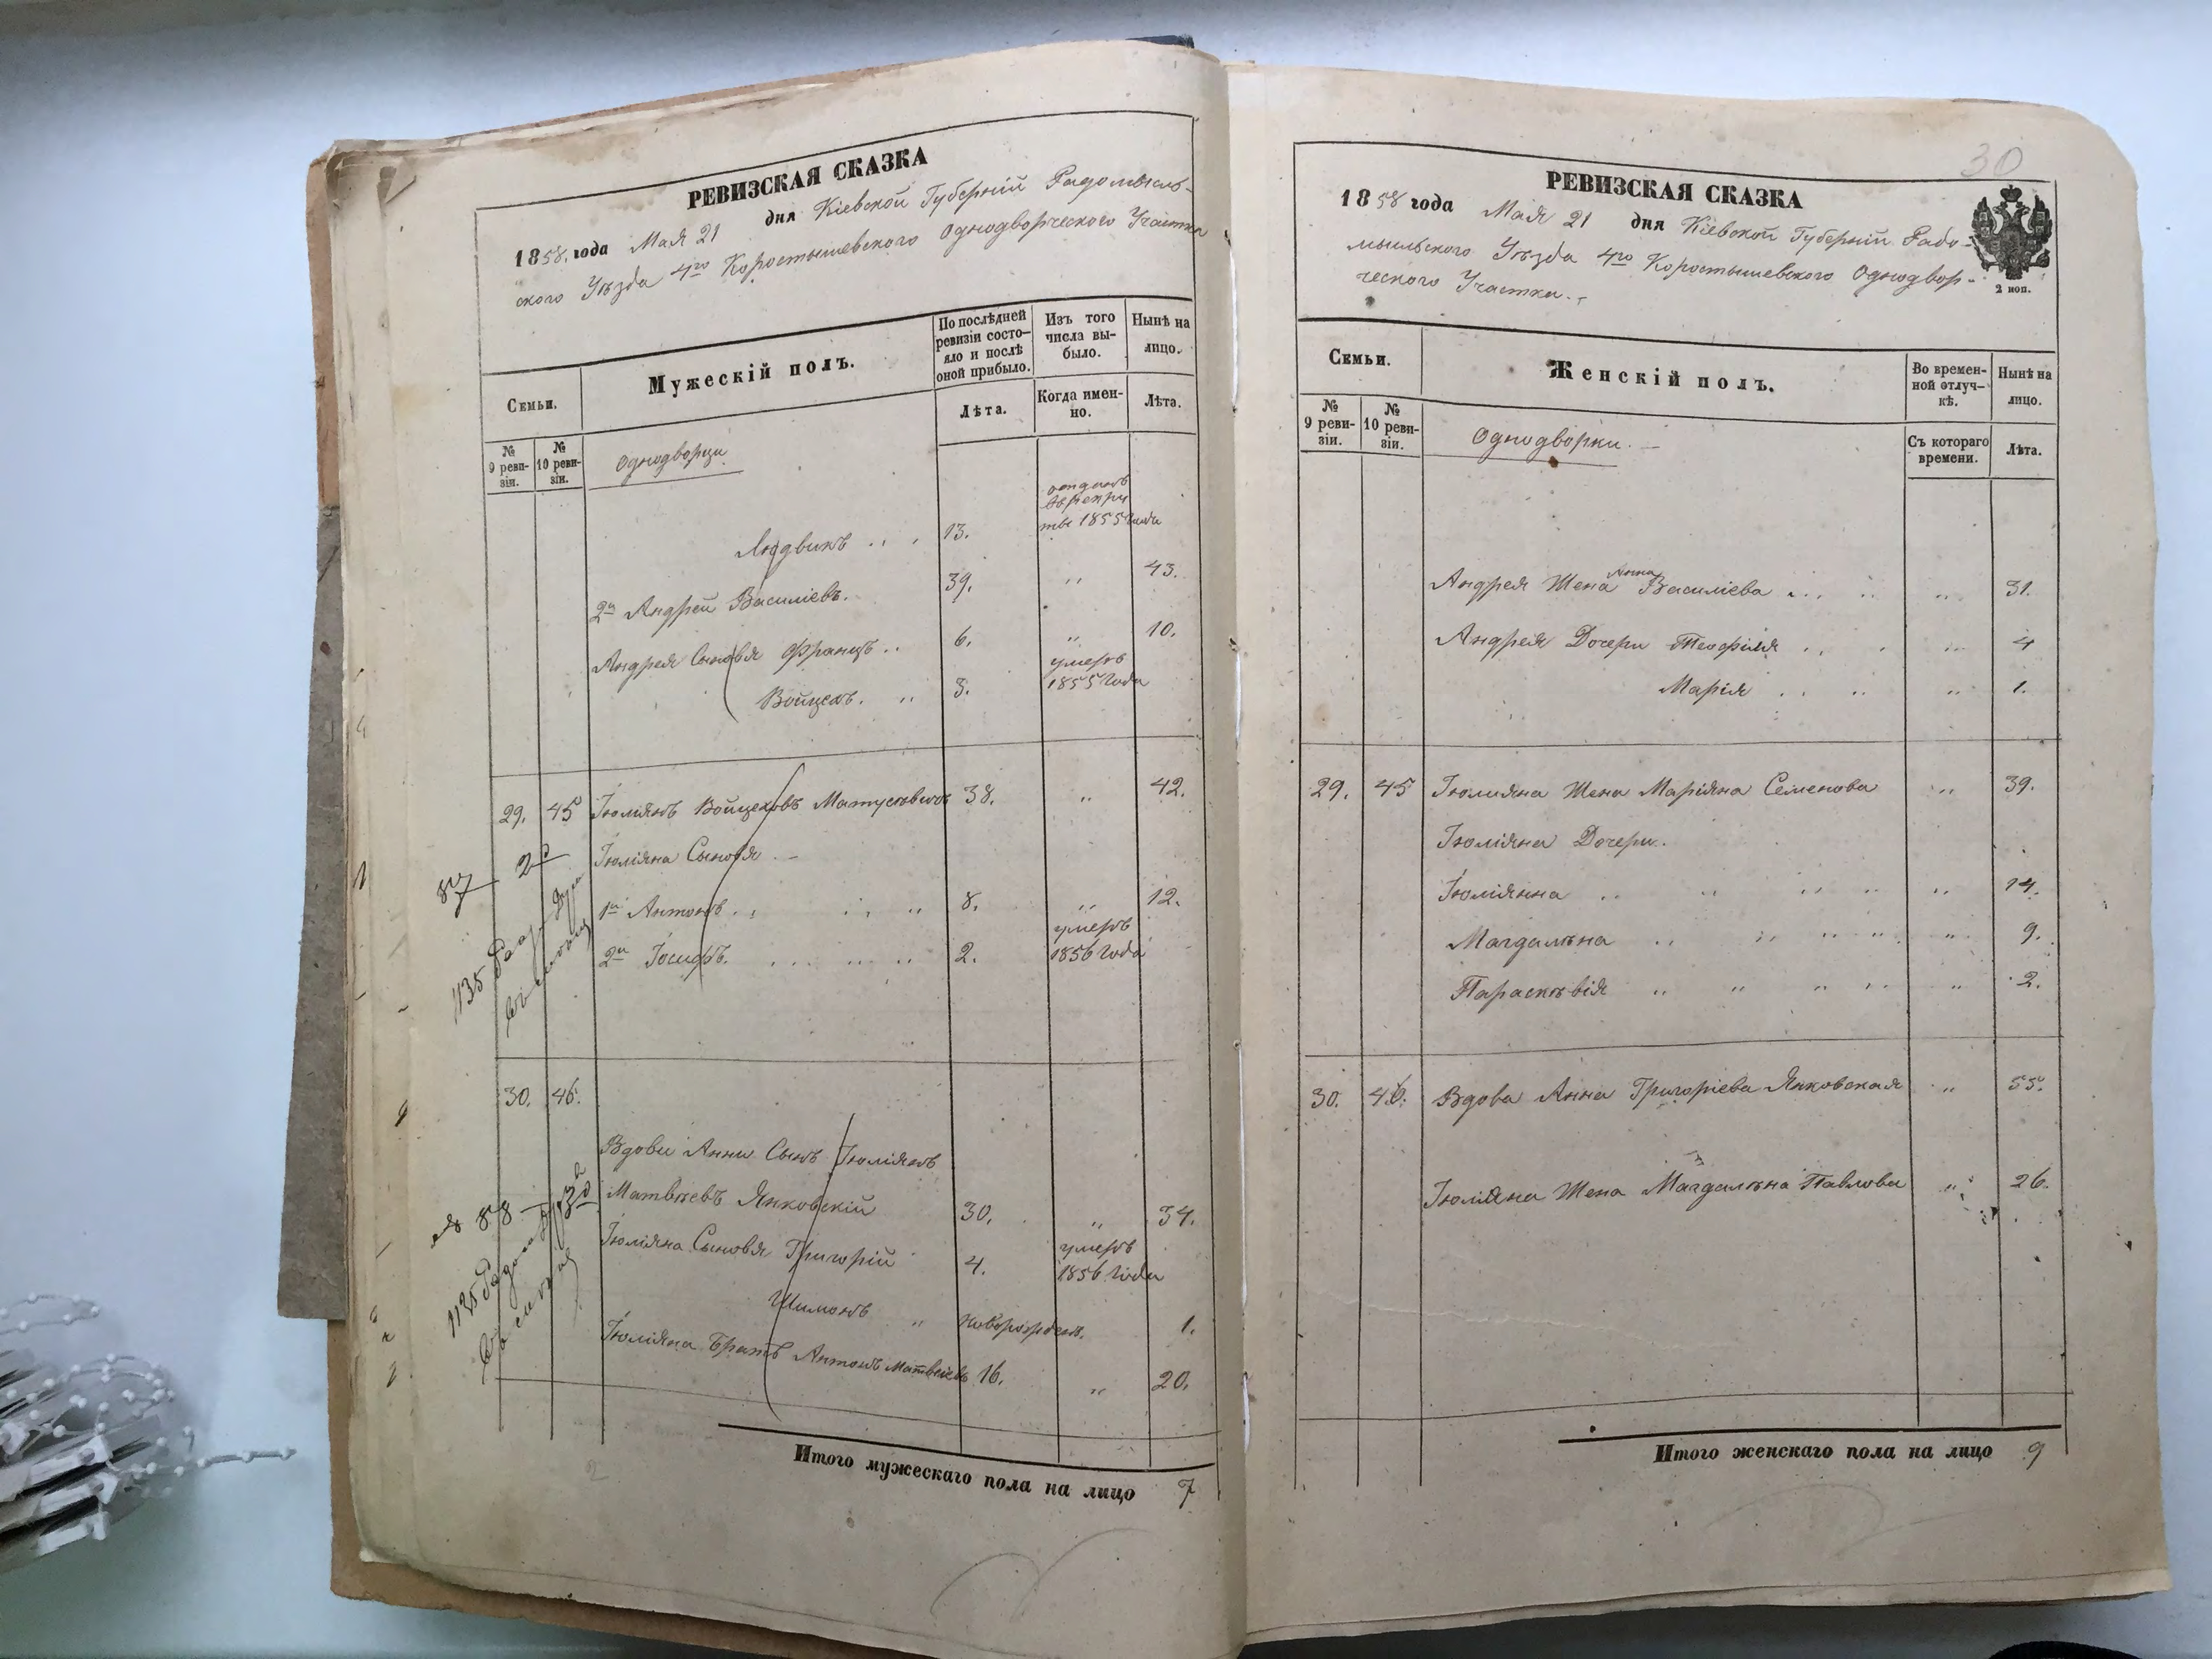 РЕВИЗСКАЯ СКАЗКА
1858. года Мая 21 дня Кіевской Губерніи Радомысль-
ского Уѣзда 4го Коростышевского Однодворческого Участка
Семьи.
Мужескій полъ.
По послѣдней ревизіи состо-яло и послѣ оной прибыло.
Изъ того числа вы-было.
Нынѣ на лицо.
№ 9 реви-зіи.
№ 10 реви-зіи.
Лѣта.
Когда имен-но.
Лѣта.
Однодворци
отданъ
въ рекру
ты 1855 года
Людвикъ 13.
2й Андрей Василіевъ. 39. " 43.
Андрея Сыновя Францъ 6. " 10.
Войцехъ. 3. умеръ 1855 года
29. 45 Іюліянъ Войцеховъ Матусевичъ 38. " 42.
Іюліяна Сыновя. -
1й Антонъ 8. " 12.
2й Іосифъ. 2. умеръ 1856 года
30. 46.
Вдови Анни Сынъ Іюліянъ
Матвѣевъ Янковскій 30. " 34.
Іюліяна Сыновя Григорій 4. умеръ 1856 года
Шимонъ " новорожден. 1.
Іюліяна Братъ Антонъ Матвѣевъ 16. " 20.
87
1135
88
Итого мужескаго пола на лицо 7
2
30
РЕВИЗСКАЯ СКАЗКА
1858 года Мая 21 дня Кіевской Губерніи Радо-
мыльского Уѣзда 4го Коростышевского Однодвор-
ческого Участка. -
2 коп.
Семьи.
Женскій полъ.
Во времен-ной отлуч-кѣ.
Нынѣ на лицо.
№ 9 реви-зіи.
№ 10 реви-зіи.
Съ котораго времени.
Лѣта.
Однодворки. -
Андрея Жена Анна Василіева " 31.
Андрея Дочери Теофіля " 4
Марія " 1.
29. 45 Іюлияна Жена Маріяна Семенова " 39.
Іюліяна Дочери.
Іюліянна " 14.
Магдалѣна " 9.
Параскѣвія " 2.
30. 46. Вдова Анна Григоріева Янковская " 55.
Іюліяна Жена Магдалѣна Павлова " 26.
Итого женскаго пола на лицо 9